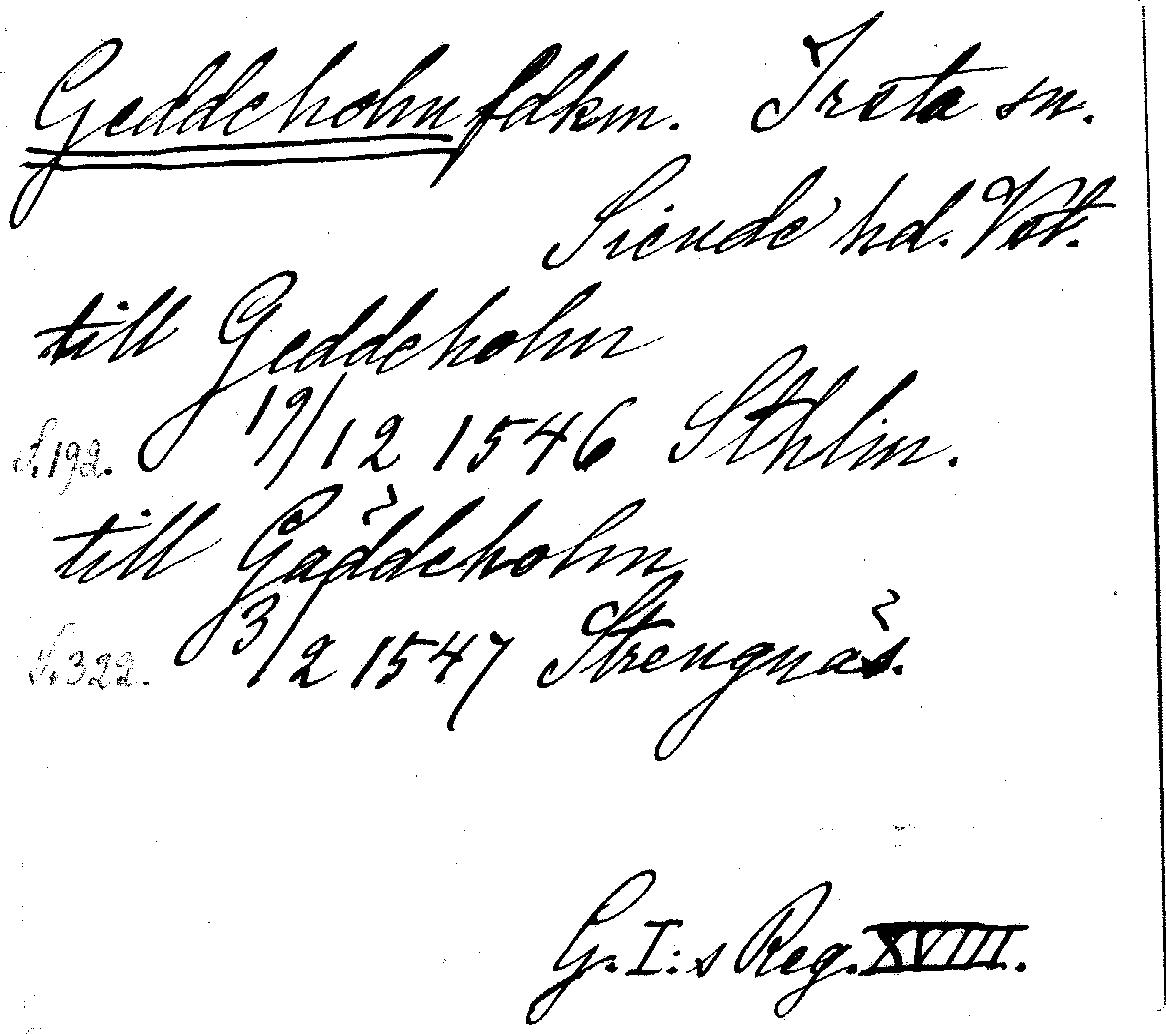 Geddeholm fdkm. Irsta sn.
Siende hd. Vstm.
till Geddeholm
S. 192. 19/12 1546 Sthlm.
till Gäddeholm
S. 322. 3/2 1547 Strengnäs.
G. I:s Reg. XVIII.